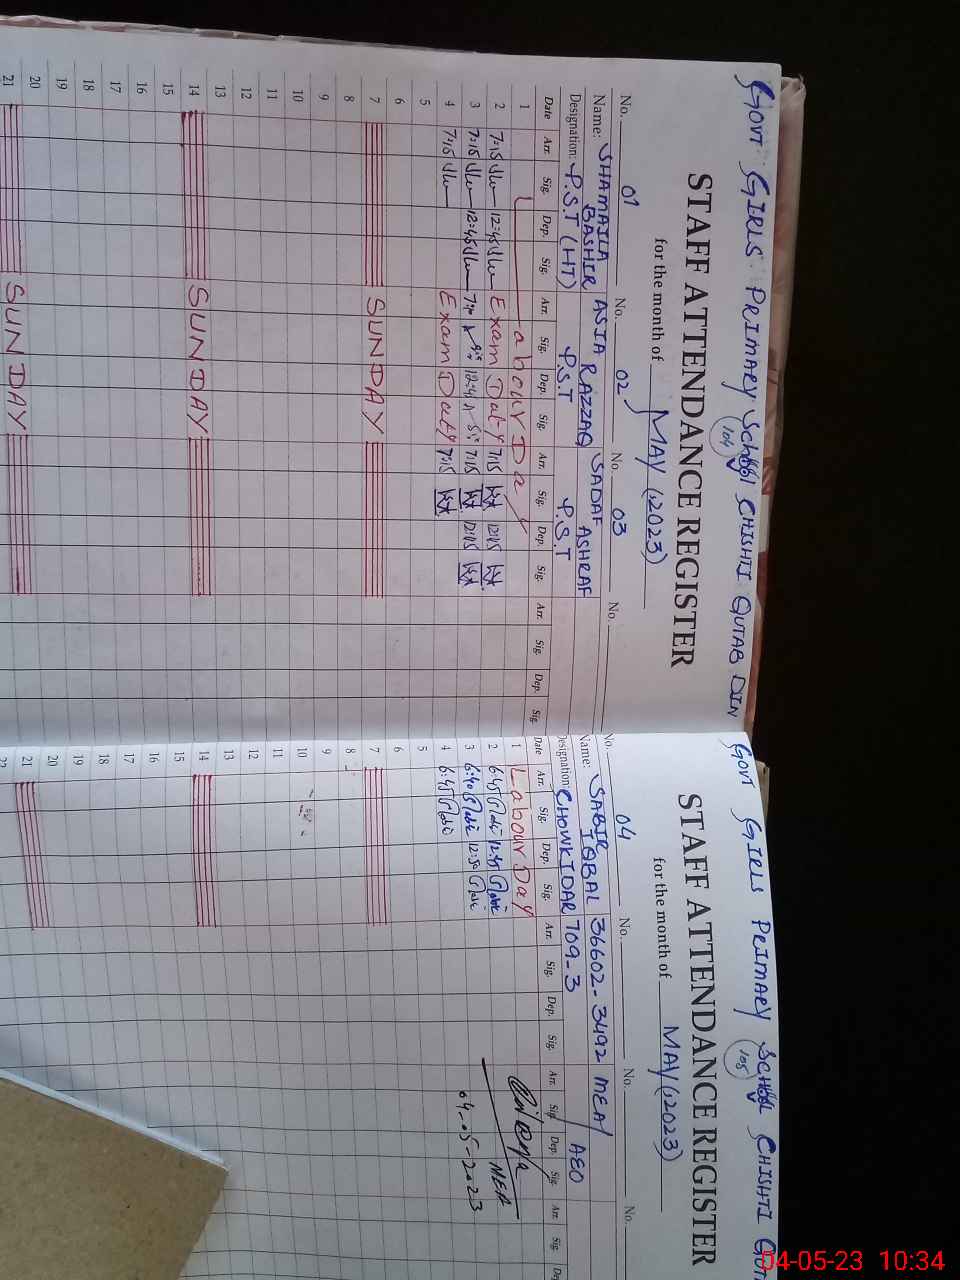 GOVT GIRLS PRIMARY SCHOOL CHISHTI QUTAB DIN
104
STAFF ATTENDANCE REGISTER
for the month of MAY (2023)
No. 01 No. 02 No. 03 No.
Name: SHAMAILA BASHIR ASIA RAZZAQ SADAF ASHRAF
Designation: P.S.T (HT) P.S.T P.S.T
Date Arr. Sig. Dep. Sig. Arr. Sig. Dep. Sig. Arr. Sig. Dep. Sig. Arr. Sig. Dep. Sig.
1 Labour Day
2 7:15 12:45 Exam Duty 7:15 12:45
3 7:15 12:45 7:15 12:45
4 7:15 Exam Duty 7:15
5
6
7 SUNDAY
8
9
10
11
12
13
14 SUNDAY
15
16
17
18
19
20
21 SUNDAY
GOVT GIRLS PRIMARY SCHOOL CHISHTI
105
STAFF ATTENDANCE REGISTER
for the month of MAY (2023)
No. 04 No. No. No.
Name: SABIR IQBAL 36602-3492 MEA/ AEO
Designation: CHOWKIDAR 709-3
Date Arr. Sig. Dep. Sig. Arr. Sig. Dep. Sig. Arr. Sig. Dep. Sig. Arr. Sig. Dep.
1 Labour Day
2 6:45
3 6:40 12:50
4 6:45
MEA
04-05-2023
5
6
7
8
9
10
11
12
13
14
15
16
17
18
19
20
21
22
04-05-23 10:34